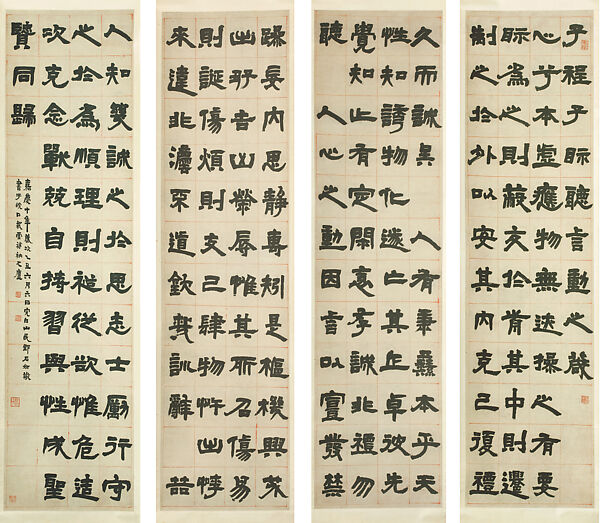 子程子眎聽言動之箴
心兮本虛應物無迹操之有要
眎為之則蔽交於前其中則遷
制之於外以安其內克己復禮
久而誠矣 人有秉彝本乎天
性知誘物化遂亡其正卓彼先
覺知止有定閑邪存誠非禮勿
聽 人心之動因言以宣發禁
躁妄內思靜專矧是樞機興戎
出好吉凶榮辱惟其所召傷易
則誕傷煩則支己肆物忤出悖
來違非灋不道欽哉訓辭 哲
人知幾誠之於思志士勵行守
之於為順理則裕從欲惟危造
次克念戰兢自持習與性成聖
賢同歸
嘉慶十年歲次乙丑六月六日完白山民鄧石如敬
書于皖口